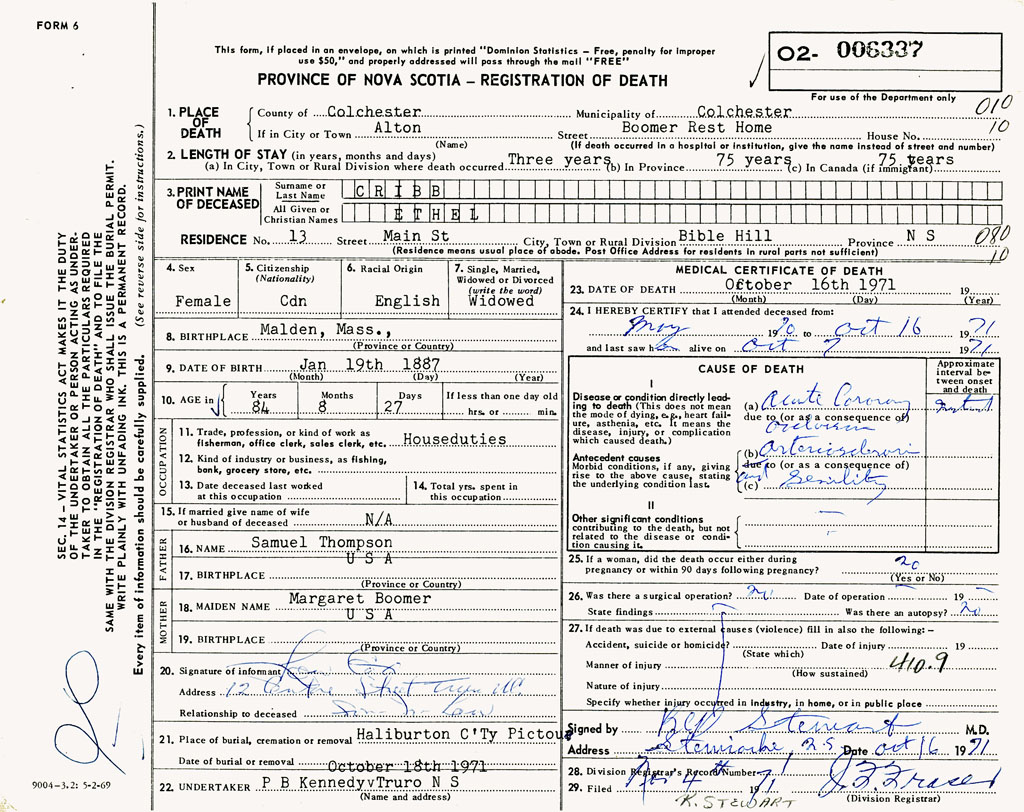 FORM 6
This form, if placed in an envelope, on which is printed "Dominion Statistics – Free, penalty for improper
use $50," and properly addressed will pass through the mail "FREE"
PROVINCE OF NOVA SCOTIA – REGISTRATION OF DEATH
02- 006337
For use of the Department only
SEC. 14 – VITAL STATISTICS ACT MAKES IT THE DUTY
OF THE UNDERTAKER OR PERSON ACTING AS UNDER-
TAKER TO OBTAIN ALL THE PARTICULARS REQUIRED
IN THE "REGISTRATION OF DEATH" AND TO FILE THE
SAME WITH THE DIVISION REGISTRAR WHO SHALL ISSUE THE BURIAL PERMIT.
WRITE PLAINLY WITH UNFADING INK. THIS IS A PERMANENT RECORD.
Every item of information should be carefully supplied. (See reverse side for instructions.)
1. PLACE OF DEATH
County of Colchester Municipality of Colchester 010
If in City or Town Alton Street Boomer Rest Home House No. 10
(Name) (If death occurred in a hospital or institution, give the name instead of street and number)
2. LENGTH OF STAY (in years, months and days)
(a) In City, Town or Rural Division where death occurred Three years (b) In Province 75 years (c) In Canada (if immigrant) 75 years
3. PRINT NAME OF DECEASED
Surname or Last Name CRIBB
All Given or Christian Names ETHEL
RESIDENCE No. 13 Street Main St City, Town or Rural Division Bible Hill Province N S 080
(Residence means usual place of abode. Post Office Address for residents in rural parts not sufficient) 10
4. Sex Female
5. Citizenship (Nationality) Cdn
6. Racial Origin English
7. Single, Married, Widowed or Divorced (write the word) Widowed
8. BIRTHPLACE Malden, Mass.,
(Province or Country)
9. DATE OF BIRTH Jan 19th 1887
(Month) (Day) (Year)
10. AGE in Years 84 Months 8 Days 27 If less than one day old hrs. or min.
OCCUPATION
11. Trade, profession, or kind of work as
fisherman, office clerk, sales clerk, etc. Houseduties
12. Kind of industry or business, as fishing,
bank, grocery store, etc.
13. Date deceased last worked
at this occupation
14. Total yrs. spent in
this occupation
15. If married give name of wife
or husband of deceased N/A
FATHER
16. NAME Samuel Thompson
U S A
17. BIRTHPLACE
(Province or Country)
MOTHER
18. MAIDEN NAME Margaret Boomer
U S A
19. BIRTHPLACE
(Province or Country)
20. Signature of informant
Address 12 Street
Relationship to deceased Son-in-law
21. Place of burial, cremation or removal Haliburton C'Ty Pictou
Date of burial or removal October 18th 1971
22. UNDERTAKER P B KennedyvTruro N S
(Name and address)
9004-3.2: 5-2-69
MEDICAL CERTIFICATE OF DEATH
23. DATE OF DEATH October 16th 1971 19
(Month) (Day) (Year)
24. I HEREBY CERTIFY that I attended deceased from:
May 1970 to Oct 16 1971
and last saw h alive on Oct 7 1971
CAUSE OF DEATH
Approximate interval between onset and death
I
Disease or condition directly lead-
ing to death (This does not mean
the mode of dying, e.g., heart fail-
ure, asthenia, etc. It means the
disease, injury, or complication
which caused death.)
(a) Acute Coronary
due to (or as a consequence of)
occlusion
Antecedent causes
Morbid conditions, if any, giving
rise to the above cause, stating
the underlying condition last.
(b) arteriosclerosis
due to (or as a consequence of)
and
(c) Senility
II
Other significant conditions
contributing to the death, but not
related to the disease or condi-
tion causing it.
25. If a woman, did the death occur either during
pregnancy or within 90 days following pregnancy? no
(Yes or No)
26. Was there a surgical operation? no Date of operation 19
State findings Was there an autopsy? no
27. If death was due to external causes (violence) fill in also the following: –
Accident, suicide or homicide? Date of injury 19
(State which)
Manner of injury 410.9
(How sustained)
Nature of injury
Specify whether injury occurred in industry, in home, or in public place
Signed by Stewart M.D.
Address Stewiacke, N.S Date Oct 16 1971
28. Division Registrar's Record Number
29. Filed Nov 4th 1971
(Division Registrar)
K. STEWART